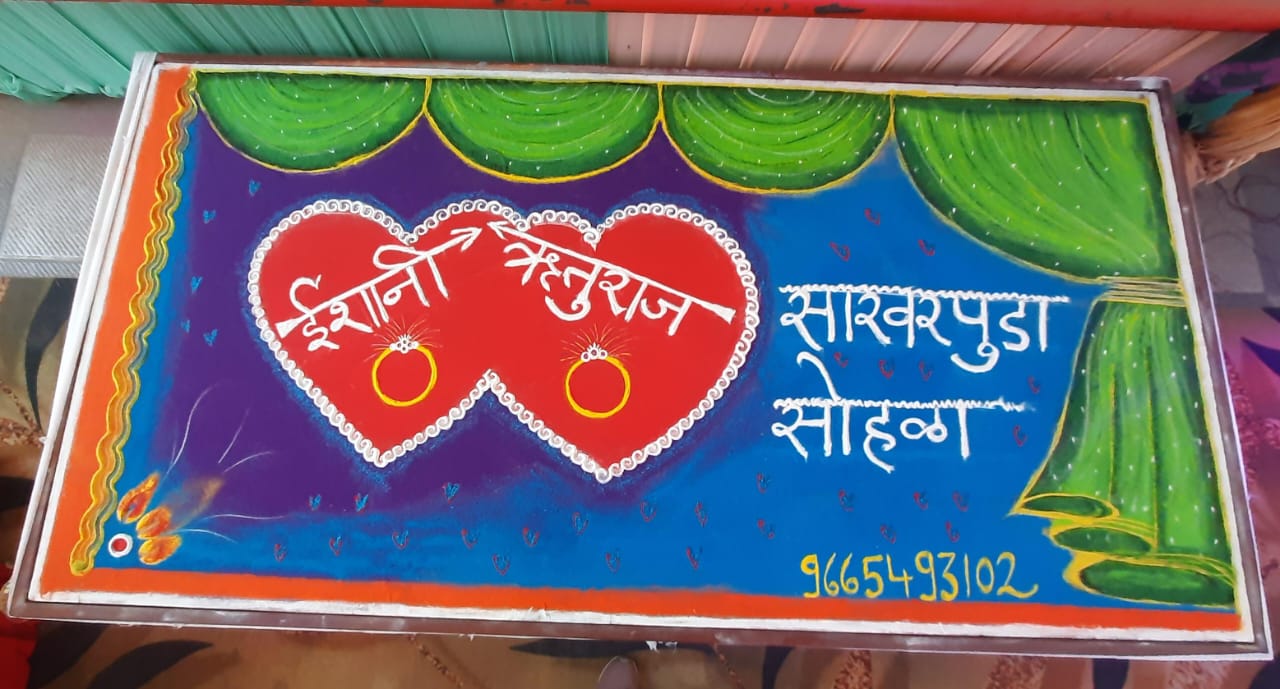 ईशानी
ऋतुराज
साखरपुडा
सोहळा
9665493102